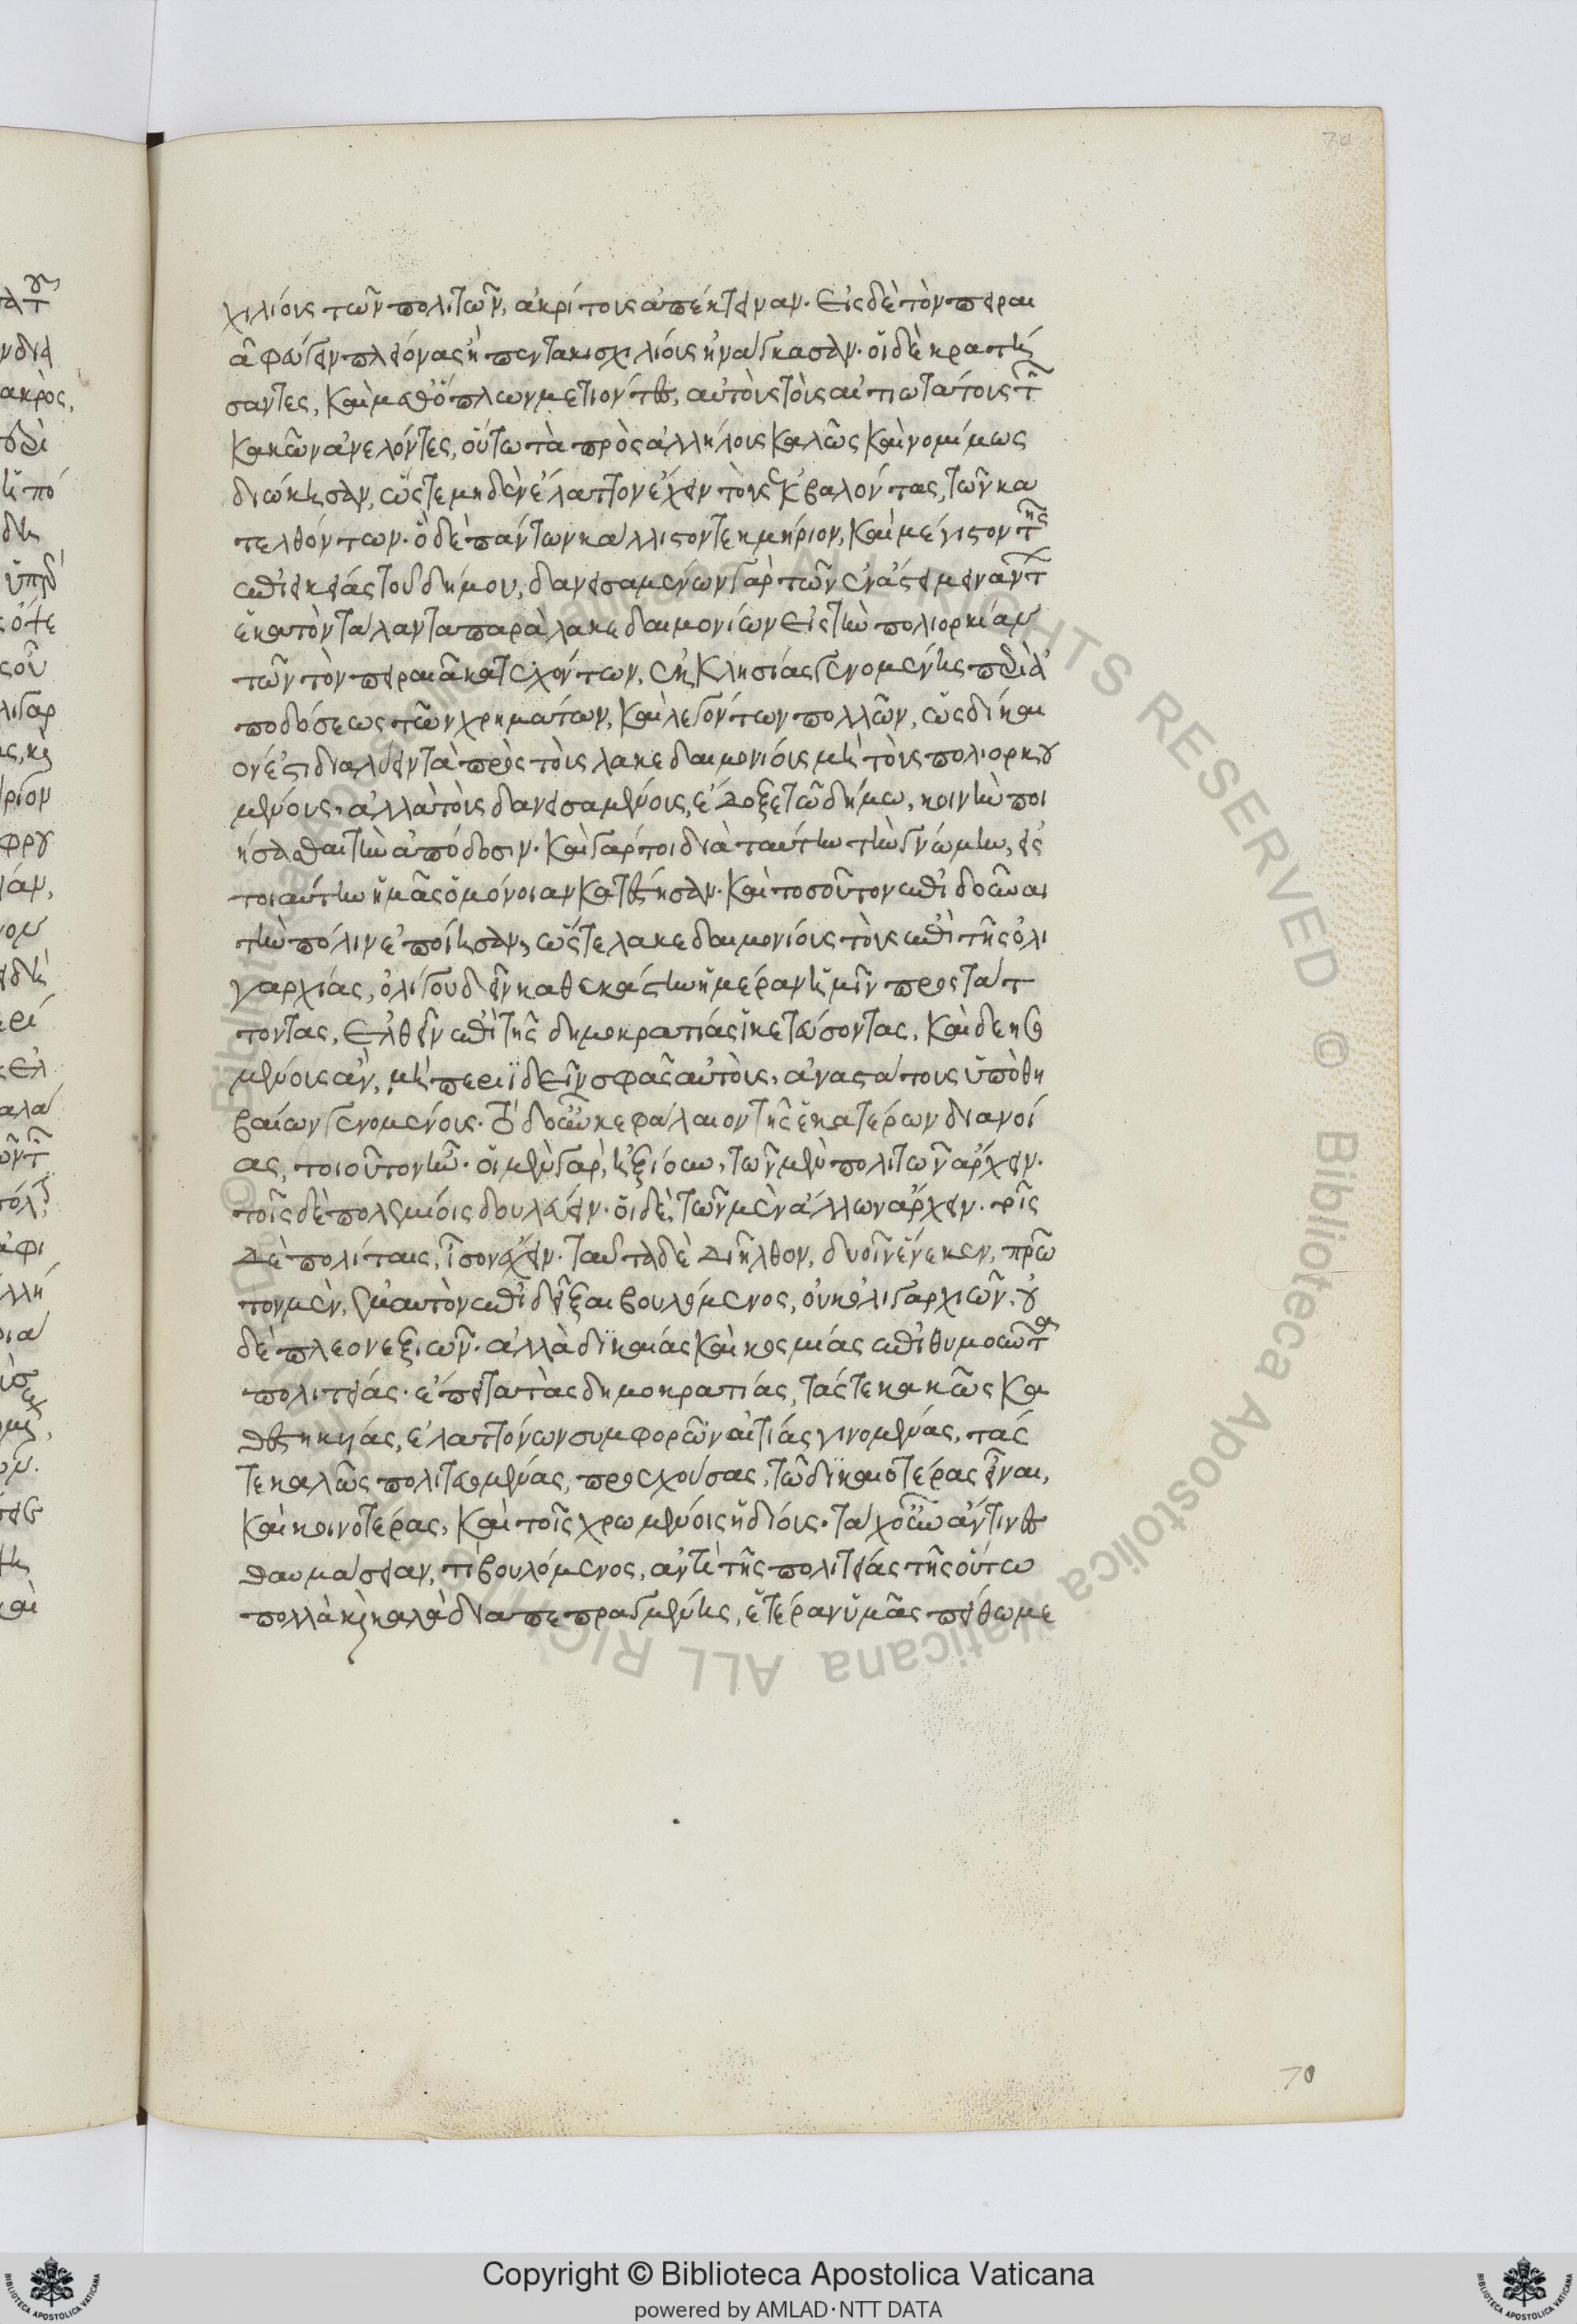 χιλίους τῶν πολιτῶν, ἀκρίτους ἀπέκτειναν. Εἰς δὲ τὸν πειραι
ᾶ φυγεῖν πλείονας ἢ πεντακισχιλίους ἠνάγκασαν. οἱ δὲ κρατή
σαντες, καὶ μεθ᾽ ὅπλων μετιόντες, αὐτοὺς τοὺς αἰτιωτάτους τῶν
κακῶν ἀνελόντες, οὕτω τὰ πρὸς ἀλλήλους καλῶς καὶ νομίμως
διώκησαν, ὥστε μηδὲν ἔλαττον ἔχειν τοὺς ἐκβαλόντας, τῶν κα
τελθόντων. ὃ δὲ πάντων κάλλιστον τεκμήριον, καὶ μέγιστον τῆς
ἐπιεικείας τοῦ δήμου, δανεισαμένων γὰρ τῶν ἐν ἄστει μεινάντων
ἑκατὸν τάλαντα παρὰ λακεδαιμονίων εἰς τὴν πολιορκίαν
τῶν τὸν πειραιᾶ κατεχόντων, ἐκκλησίας γενομένης περὶ ἀ
ποδόσεως τῶν χρημάτων, καὶ λεγόντων πολλῶν, ὡς δίκαι
ον ἐστι διαλύειν τὰ πρὸς τοὺς λακεδαιμονίους μὴ τοὺς πολιορκου
μένους, ἀλλὰ τοὺς δανεισαμένους, ἔδοξε τῷ δήμω, κοινὴν ποι
ήσασθαι τὴν ἀπόδοσιν. καὶ γάρ τοι διὰ ταύτην τὴν γνώμην, εἰς
τοιαύτην ἡμᾶς ὁμόνοιαν κατέστησαν. καὶ τοσοῦτον ἐπιδοῦναι
τὴν πόλιν ἐποίησαν, ὥστε λακεδαιμονίους τοὺς ἐπὶ τῆς ὀλι
γαρχίας, ὀλίγου δεῖν καθεκάστην ἡμέραν ἡμῖν προστάτ
τοντας, ἐλθεῖν ἐπὶ τῆς δημοκρατίας ἱκετεύσοντας, καὶ δεησο
μένους ἂν, μὴ περιϊδεῖν σφᾶς αὐτοὺς, ἀναστάτους ὑπὸ θη
βαίων γενομένους. τὸ δ᾽ οὖν κεφάλαιον τῆς ἑκατέρων διανοί
ας, τοιοῦτον ἦν. οἱ μὲν γὰρ, ἠξίουν, τῶν μὲν πολιτῶν ἄρχειν.
τοῖς δὲ πολεμίοις δουλεύειν. οἱ δὲ, τῶν μὲν ἄλλων ἄρχειν. τοῖς
δὲ πολίταις, ἴσον ἔχειν. ταῦτα δὲ διῆλθον, δυοῖν ἕνεκεν, πρῶ
τον μὲν, ἐμαυτὸν ἐπιδεῖξαι βουλόμενος, οὐκ ὀλιγαρχιῶν, οὐ
δὲ πλεονεξιῶν. ἀλλὰ δικαίας καὶ κοσμίας ἐπιθυμοῦντα
πολιτείας. ἔπειτα τὰς δημοκρατίας, τάς τε κακῶς κα
θεστηκυίας, ἐλαττόνων συμφορῶν αἰτίας γινομένας, τάς
τε καλῶς πολιτευομένας, προεχούσας, τῶ δικαιοτέρας εἶναι,
καὶ κοινοτέρας, καὶ τοῖς χρωμένοις ἡδίους. τάχ᾽ οὖν ἄν τινες
θαυμάσειαν, τί βουλόμενος, ἀντὶ τῆς πολιτείας τῆς οὕτω
πολλὰ καὶ καλὰ διαπεπραγμένης, ἑτέραν ὑμᾶς πείθω με
70
70
Copyright © Biblioteca Apostolica Vaticana
powered by AMLAD·NTT DATA